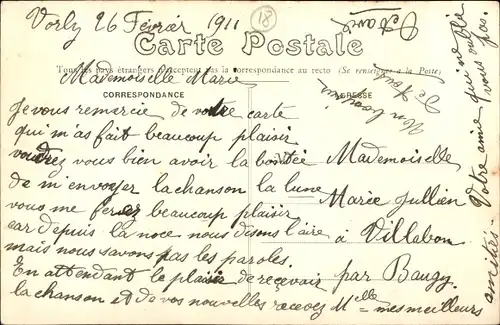 Vorly 26 Février 1911
18
Carte Postale
Tous les pays étrangers n'acceptent pas la correspondance au recto (Se renseigner à la Poste)
CORRESPONDANCE
ADRESSE
Mademoiselle Marie
Je vous remercie de votre carte
qui m'as fait beaucoup plaisir
voudrez vous bien avoir la bontée
de m'envoyer la chanson la lune
vous me ferez beaucoup plaisir
car depuis la noce nous disons l'aire
mais nous savons pas les paroles.
En attendant le plaisir de reçevoir
la chanson et de vos nouvelles recevez Mlle mes meilleurs
amitiés
Votre amie qui ne
vous pas.
Mademoiselle
Marie Jullien
à Villabon
par Baugy